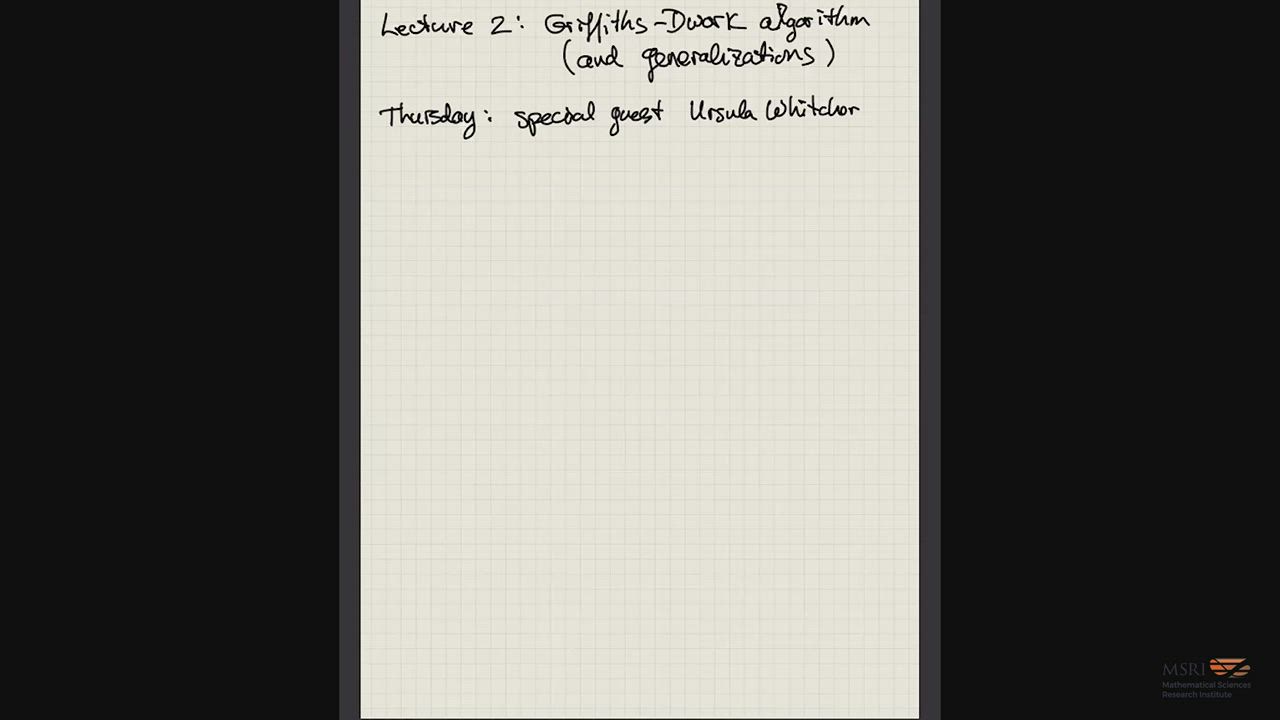 Lecture 2: Griffiths-Dwork algorithm
(and generalizations)
Thursday: special guest Ursula Whitcher
MSRI
Mathematical Sciences
Research Institute